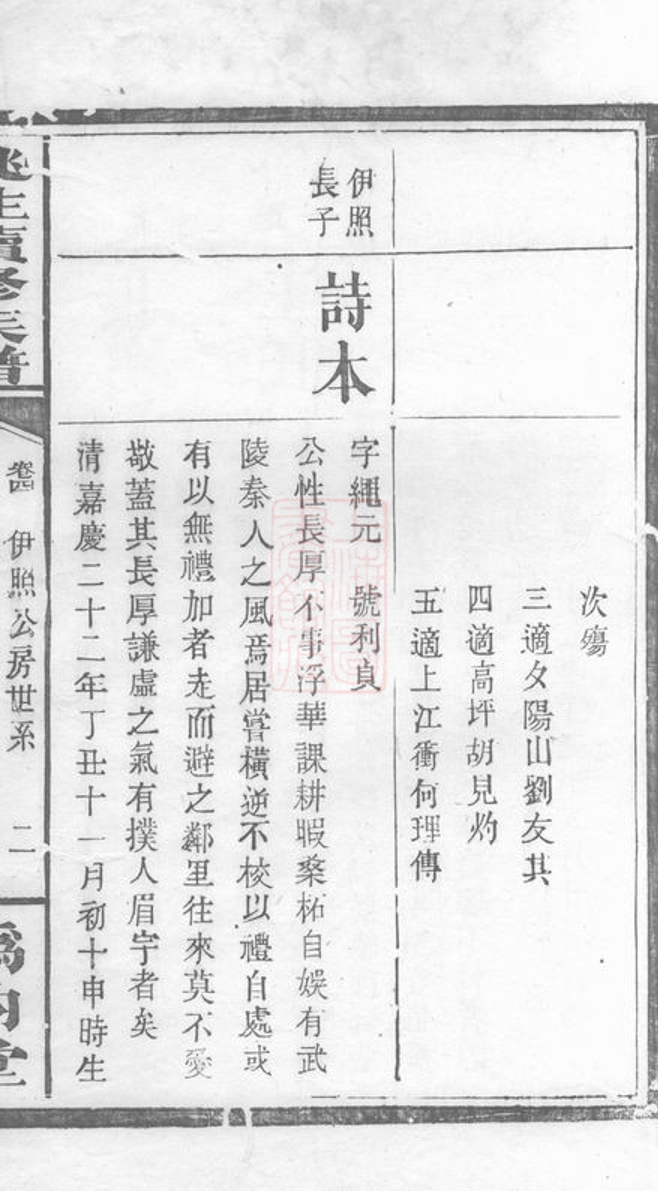 次殤
三適夕陽山劉友其
四適高坪胡見灼
五適上江衝何理傳
伊照
長子
詩本
字繩元 號利貞
公性長厚不事浮華課耕暇桑柘自娛有武
陵秦人之風焉居嘗橫逆不校以禮自處或
有以無禮加者走而避之鄰里往來莫不愛
敬蓋其長厚謙虛之氣有撲人眉宇者矣
清嘉慶二十二年丁丑十一月初十申時生
續修族譜
卷四 伊照公房世系 二
堂